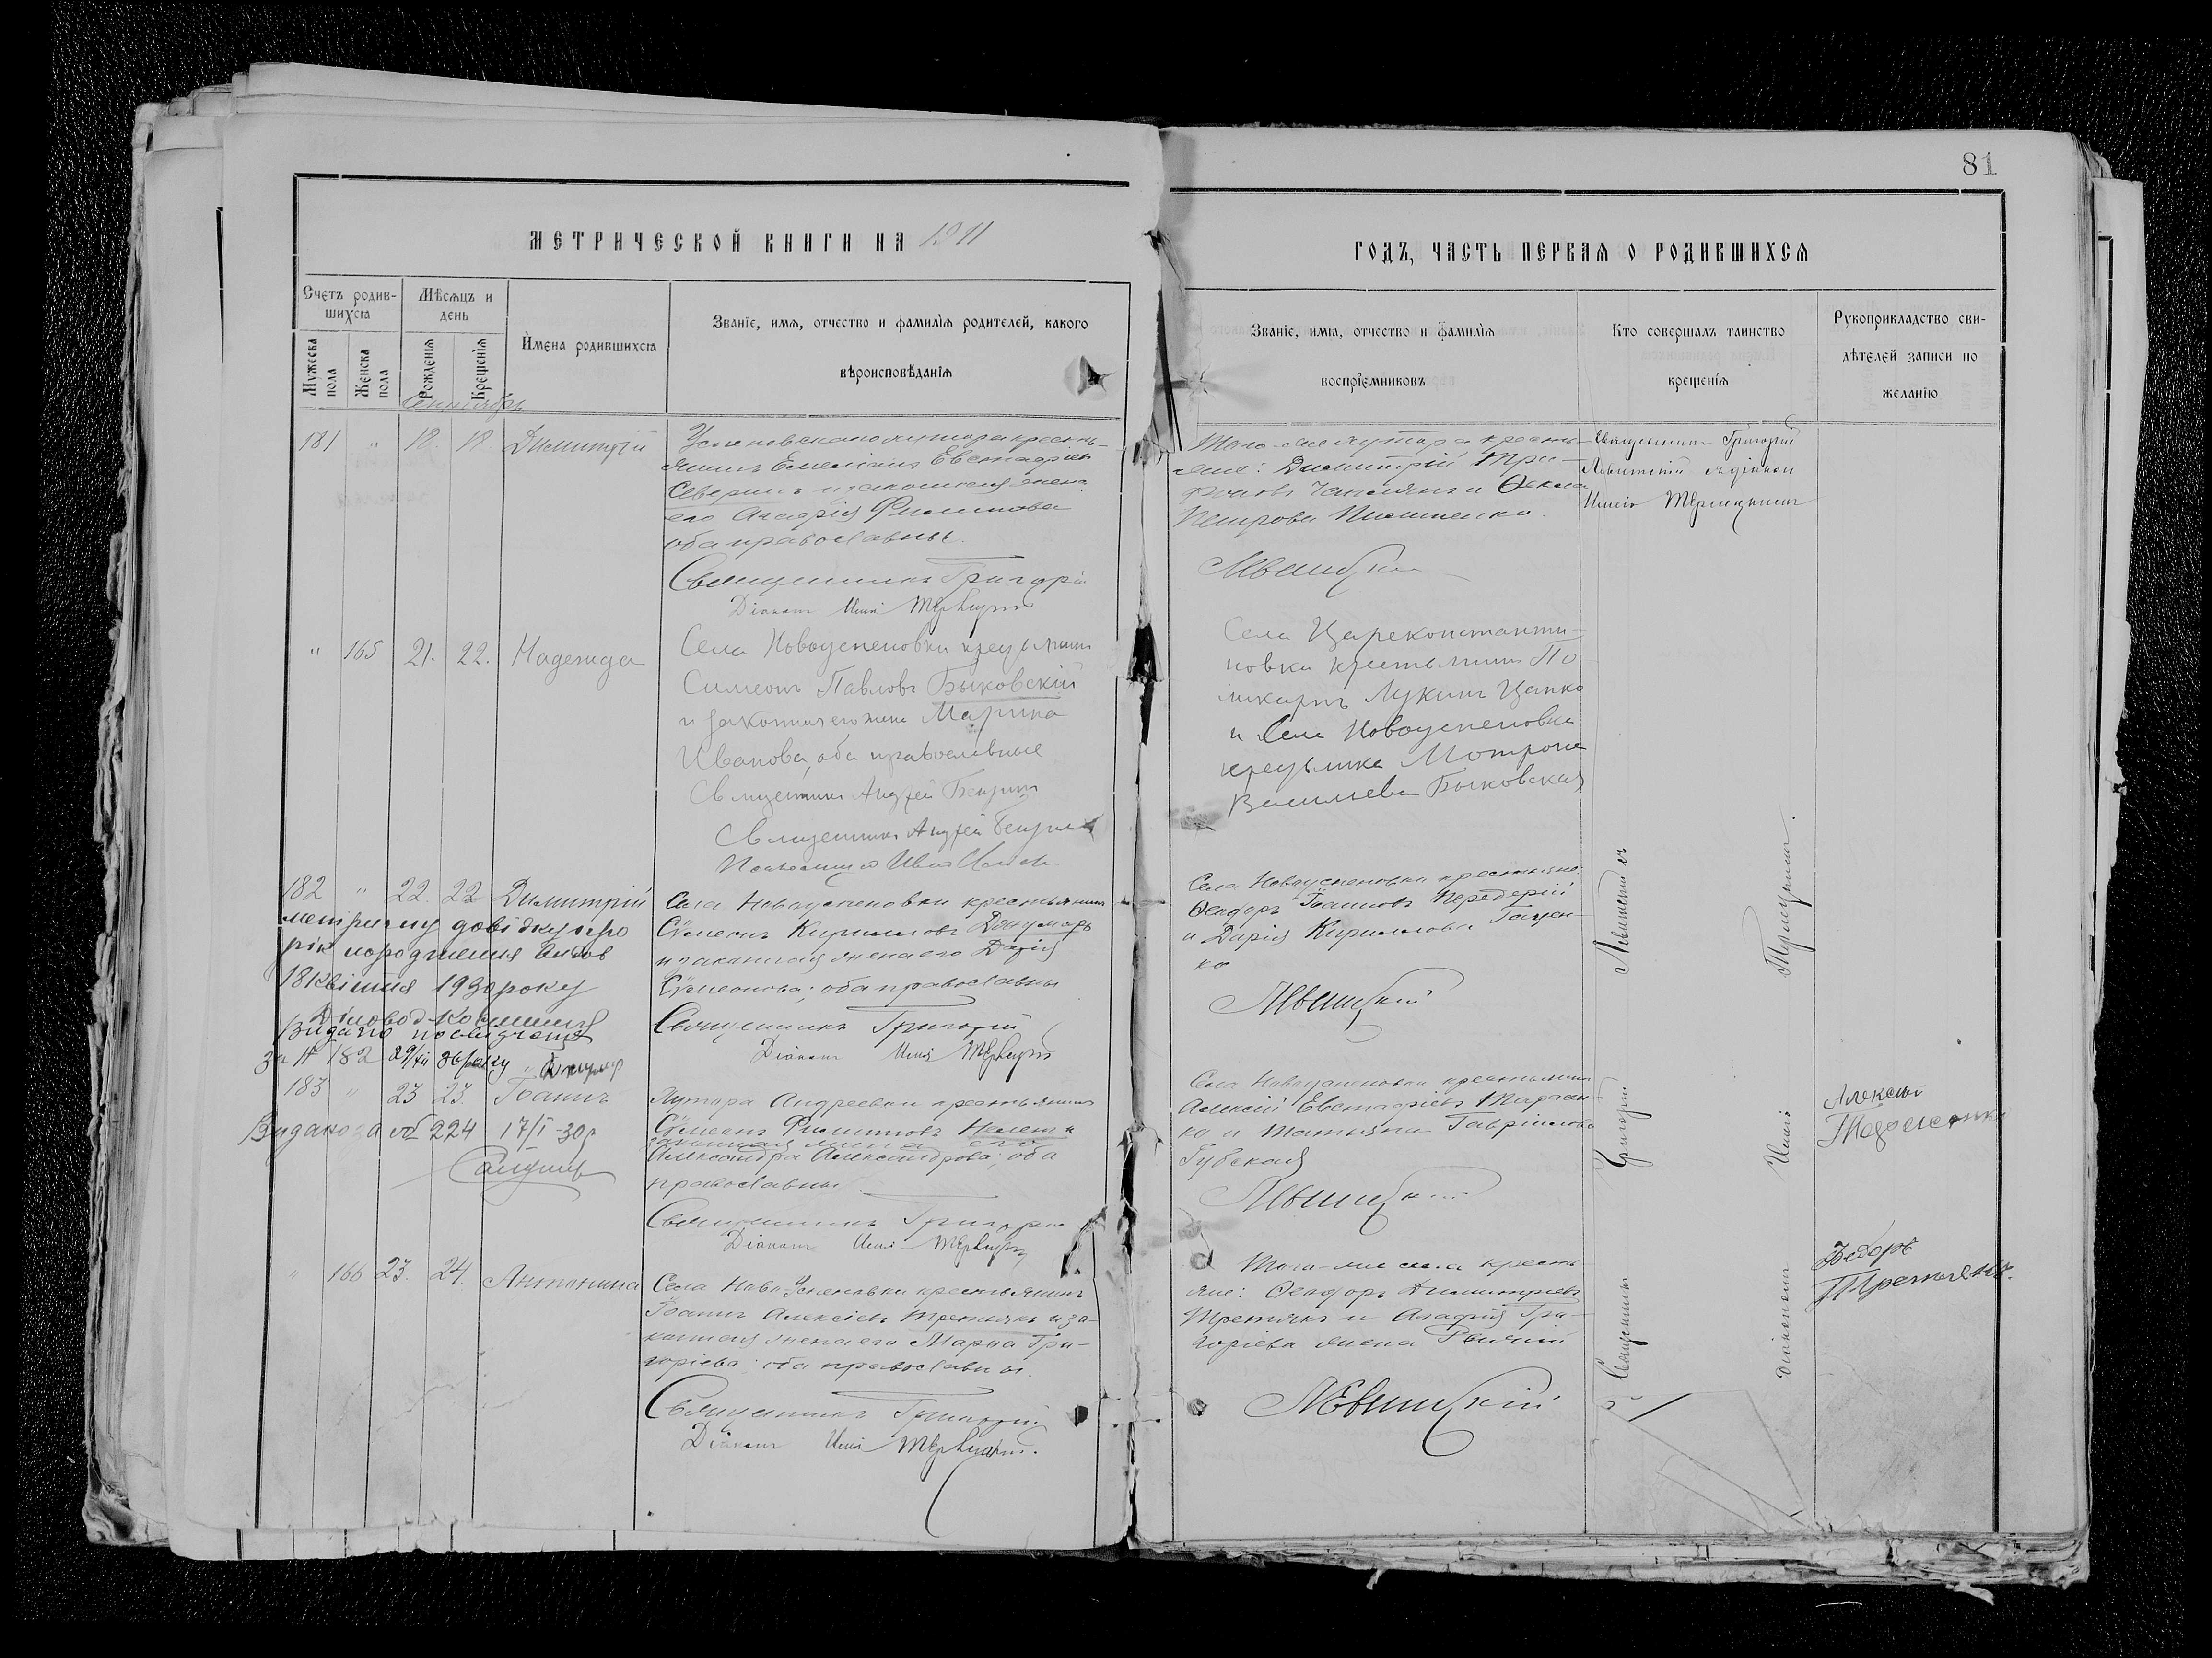 81
МЕТРИЧЕСКОЙ КНИГИ НА 1911
ГОДЪ, ЧАСТЬ ПЕРВАЯ О РОДИВШИХСЯ
Счетъ родив-
шихся
Мужеска пола
Женска пола
Мѣсяцъ и
день
Рожденія
Крещенія
Имена родившихся
Званіе, имя, отчество и фамилія родителей, какого
вѣроисповѣданія
Званіе, имя, отчество и фамилія
воспріемниковъ
Кто совершалъ таинство
крещенія
Рукоприкладство сви-
дѣтелей записи по
желанію
Сентябрь
181 " 18. 18. Димитрій
Успеновскаго хутора кресть-
янинъ Емеліанъ Евстафіевъ
Северинъ и законная жена
его Агафія Филиппова
оба православны.
Священникъ Григорій
Діаконъ
Того-же хутора крестья-
не: Димитрій Три-
фоновъ и Ѳекла
Петрова
Левицкій
Священникъ Григорій
Левицкій съ діакон
" 165 21. 22. Надежда
Села Новоуспеновки крестьянин
Симеонъ Павловъ Быковскій
и законная его жена Марина
Иванова, оба православные
Священникъ Андрей
Священникъ Андрей
Псаломщикъ
Села Цареконстанти-
новки крестьянинъ По-
ликарпъ Лукинъ Цапко
и Села Новоуспеновки
крестьянка Мотрона
Васильева Быковская
182 " 22. 22 Димитрій
Села Новоуспеновки крестьянинъ
Сѵмеонъ Кирилловъ
и законная жена его Дарія
Сѵмеонова; оба православны
Священникъ Григорій
Діаконъ
Села Новоуспеновки крестьяне:
Ѳеодоръ Іоанновъ Передерій
и Дарія Кириллова Гацен-
ко
Левицкій
метричну довідку про
рік народження видав
18 квітня 1930 року
Видано посвідчення
за № 182
183 " 23 23 Іоаннъ
Видано за № 224 17/I-30р
Хутора Андреевки крестьянинъ
Сѵмеонъ Филипповъ и
законная жена его
Александра Александрова; оба
православны.
Священникъ Григорій
Діаконъ
Села Новоуспеновки крестьяне
Алексій Евстафіевъ Тарасен-
ко и Татьяна Гавріилова
Губская
Левицкій
Алексій
Тарасенко
" 166 23. 24. Антонина
Села Ново Успеновки крестьянинъ
Іоаннъ Алексіевъ Третьякъ и за-
конная жена его Марѳа Гри-
горіева: оба православны.
Священникъ Григорій
Діаконъ
Того-же села крестья
не: Ѳеодоръ Димитріевъ
Третьякъ и Агафія Гри-
горіева жена
Левицкій
Федоръ
Третьякъ.
Священникъ Григорій Левицкій съ
діакономъ